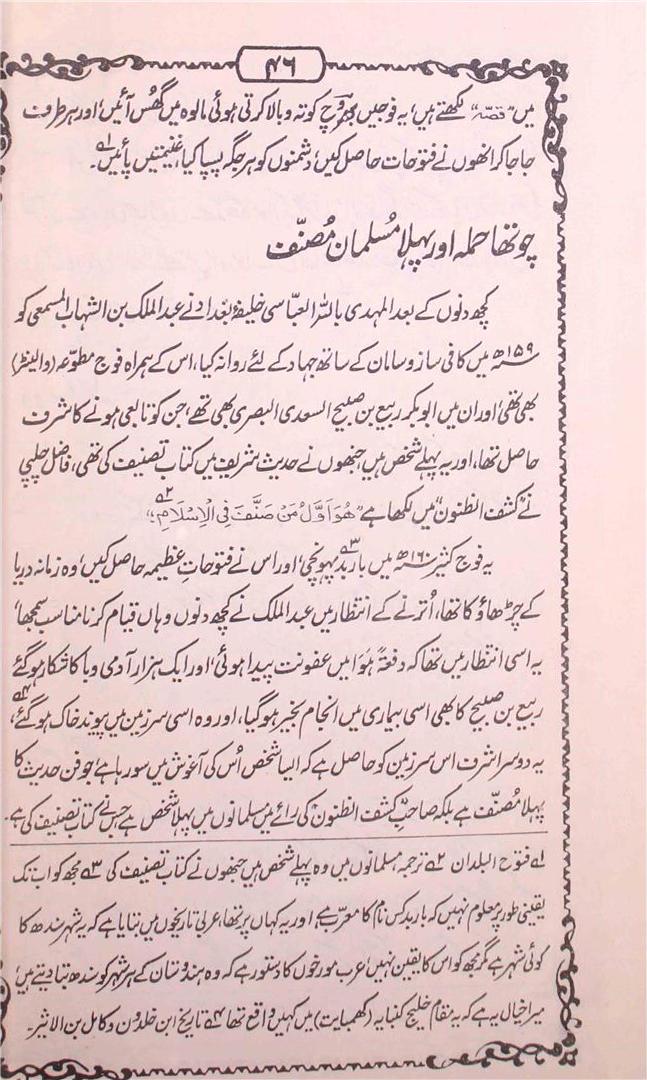 ۴۶
میں "قصّہ" لکھتے ہیں، یہ فوجیں بھروچ کو تہ و بالا کرتی ہوئی مالوہ میں گھُس آئیں، اور ہر طرف
جا جا کر انھوں نے فتوحات حاصل کیں، دشمنوں کو ہر جگہ پسپا کیا، غنیمتیں پائیں ۱؎۔
چوتھا حملہ اور پہلا مُسلمان مُصنّف
کچھ دنوں کے بعد المہدی باللہ العبّاسی خلیفۂ بغداد نے عبد الملک بن الشہاب المسمعی کو
۱۵۹ھ میں کافی ساز و سامان کے ساتھ جہاد کے لئے روانہ کیا، اس کے ہمراہ فوج مطوّعہ (والینٹر)
بھی تھی، اور ان میں ابوبکر ربیع بن صبیح السعدی البصری بھی تھے، جن کو تابعی ہونے کا شرف
حاصل تھا، اور یہ پہلے شخص ہیں جنھوں نے حدیث شریف میں کتاب تصنیف کی تھی، فاضل چلپی
نے "کشف الظنون" میں لکھا ہے "هُوَ اَوَّلُ مَنْ صَنَّفَ فِی الْاِسْلَامِ" ۲؎؛
یہ فوج کثیر ۱۶۰ھ میں باربد ۳؎ پہونچی، اور اس نے فتوحاتِ عظیمہ حاصل کیں، وہ زمانہ دریا
کے چڑھاؤ کا تھا، اُترنے کے انتظار میں عبد الملک نے کچھ دنوں وہاں قیام کرنا مناسب سمجھا،
یہ اسی انتظار میں تھا کہ دفعۃً ہَوَا میں عفونت پیدا ہوئی، اور ایک ہزار آدمی وبا کا شکار ہو گئے
ربیع بن صبیح کا بھی اسی بیماری میں انجام بخیر ہو گیا، اور وہ اسی سرزمین میں پیوند خاک ہو گئے ۴؎،
یہ دوسرا شرف اس سرزمین کو حاصل ہے کہ ایسا شخص اُس کی آغوش میں سو رہا ہے، جو فن حدیث کا
پہلا مُصنّف ہے بلکہ صاحبِ کشف الظنون کی رائے میں مسلمانوں میں پہلا شخص ہے جس نے کتاب تصنیف کی ہے۔
۱؎ فتوح البلدان ۲؎ ترجمہ، مسلمانوں میں وہ پہلے شخص ہیں جنھوں نے کتاب تصنیف کی ۳؎ مجھ کو اب تک
یقینی طور پر معلوم نہیں کہ باربد کس نام کا معرب ہے، اور یہ کہاں پر تھا، عربی تاریخوں میں بتایا ہے کہ یہ شہر سندھ کا
کوئی شہر ہے مگر مجھ کو اس کا یقین نہیں، عرب مورخوں کا دستور ہے کہ وہ ہندوستان کے ہر شہر کو سندھ بتا دیتے ہیں،
میرا خیال یہ ہے کہ یہ مقام خلیج کنبایہ (کھمبایت) میں کہیں واقع تھا ۴؎ تاریخ ابن خلدون و کامل بن الاثیر۔